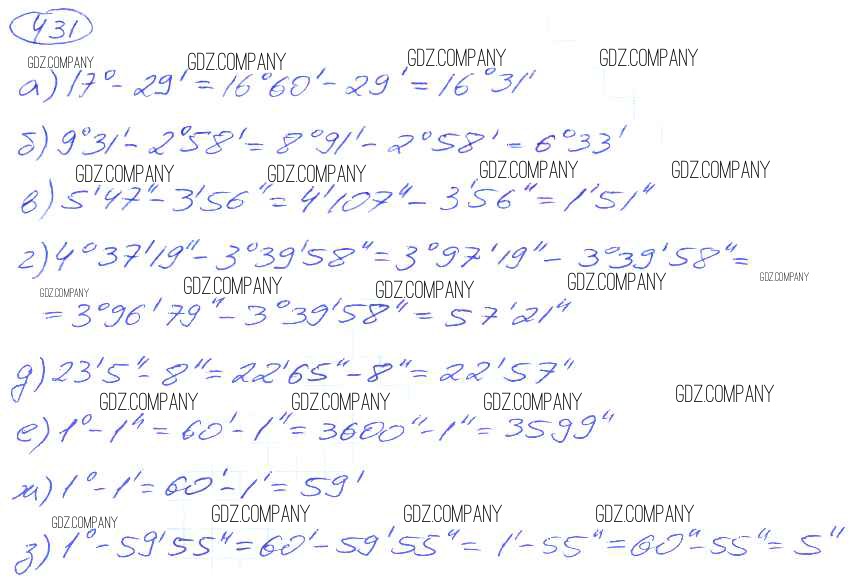 431
GDZ.COMPANY GDZ.COMPANY GDZ.COMPANY GDZ.COMPANY
а) 17° - 29' = 16°60' - 29' = 16°31'
б) 9°31' - 2°58' = 8°91' - 2°58' = 6°33'
GDZ.COMPANY GDZ.COMPANY GDZ.COMPANY GDZ.COMPANY
в) 5'47" - 3'56" = 4'107" - 3'56" = 1'51"
г) 4°37'19" - 3°39'58" = 3°97'19" - 3°39'58" =
GDZ.COMPANY GDZ.COMPANY GDZ.COMPANY GDZ.COMPANY GDZ.COMPANY
= 3°96'79" - 3°39'58" = 57'21"
д) 23'5" - 8" = 22'65" - 8" = 22'57"
GDZ.COMPANY GDZ.COMPANY GDZ.COMPANY GDZ.COMPANY
е) 1° - 1" = 60' - 1" = 3600" - 1" = 3599"
ж) 1° - 1' = 60' - 1' = 59'
GDZ.COMPANY GDZ.COMPANY GDZ.COMPANY GDZ.COMPANY
з) 1° - 59'55" = 60' - 59'55" = 1' - 55" = 60" - 55" = 5"